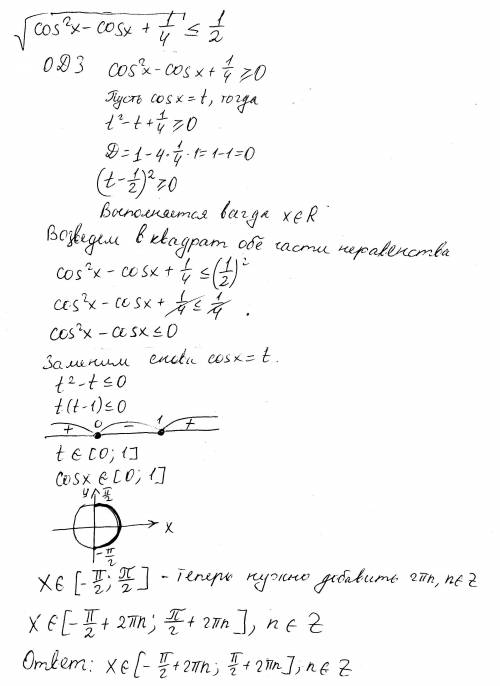 √(cos²x - cosx + 1/4) ≤ 1/2
ОДЗ cos²x - cosx + 1/4 ≥ 0
Пусть cosx = t, тогда
t² - t + 1/4 ≥ 0
D = 1 - 4 · 1/4 · 1 = 1 - 1 = 0
(t - 1/2)² ≥ 0
Выполняется всегда x ∈ R
Возведем в квадрат обе части неравенства
cos²x - cosx + 1/4 ≤ (1/2)²
cos²x - cosx + 1/4 ≤ 1/4 .
cos²x - cosx ≤ 0
Заменим снова cosx = t.
t² - t ≤ 0
t(t - 1) ≤ 0
+ 0 - 1 +
t ∈ [0; 1]
cosx ∈ [0; 1]
y π/2
x
-π/2
x ∈ [-π/2; π/2] - теперь нужно добавить 2πn, n ∈ Z
x ∈ [-π/2 + 2πn; π/2 + 2πn], n ∈ Z
Ответ: x ∈ [-π/2 + 2πn; π/2 + 2πn], n ∈ Z